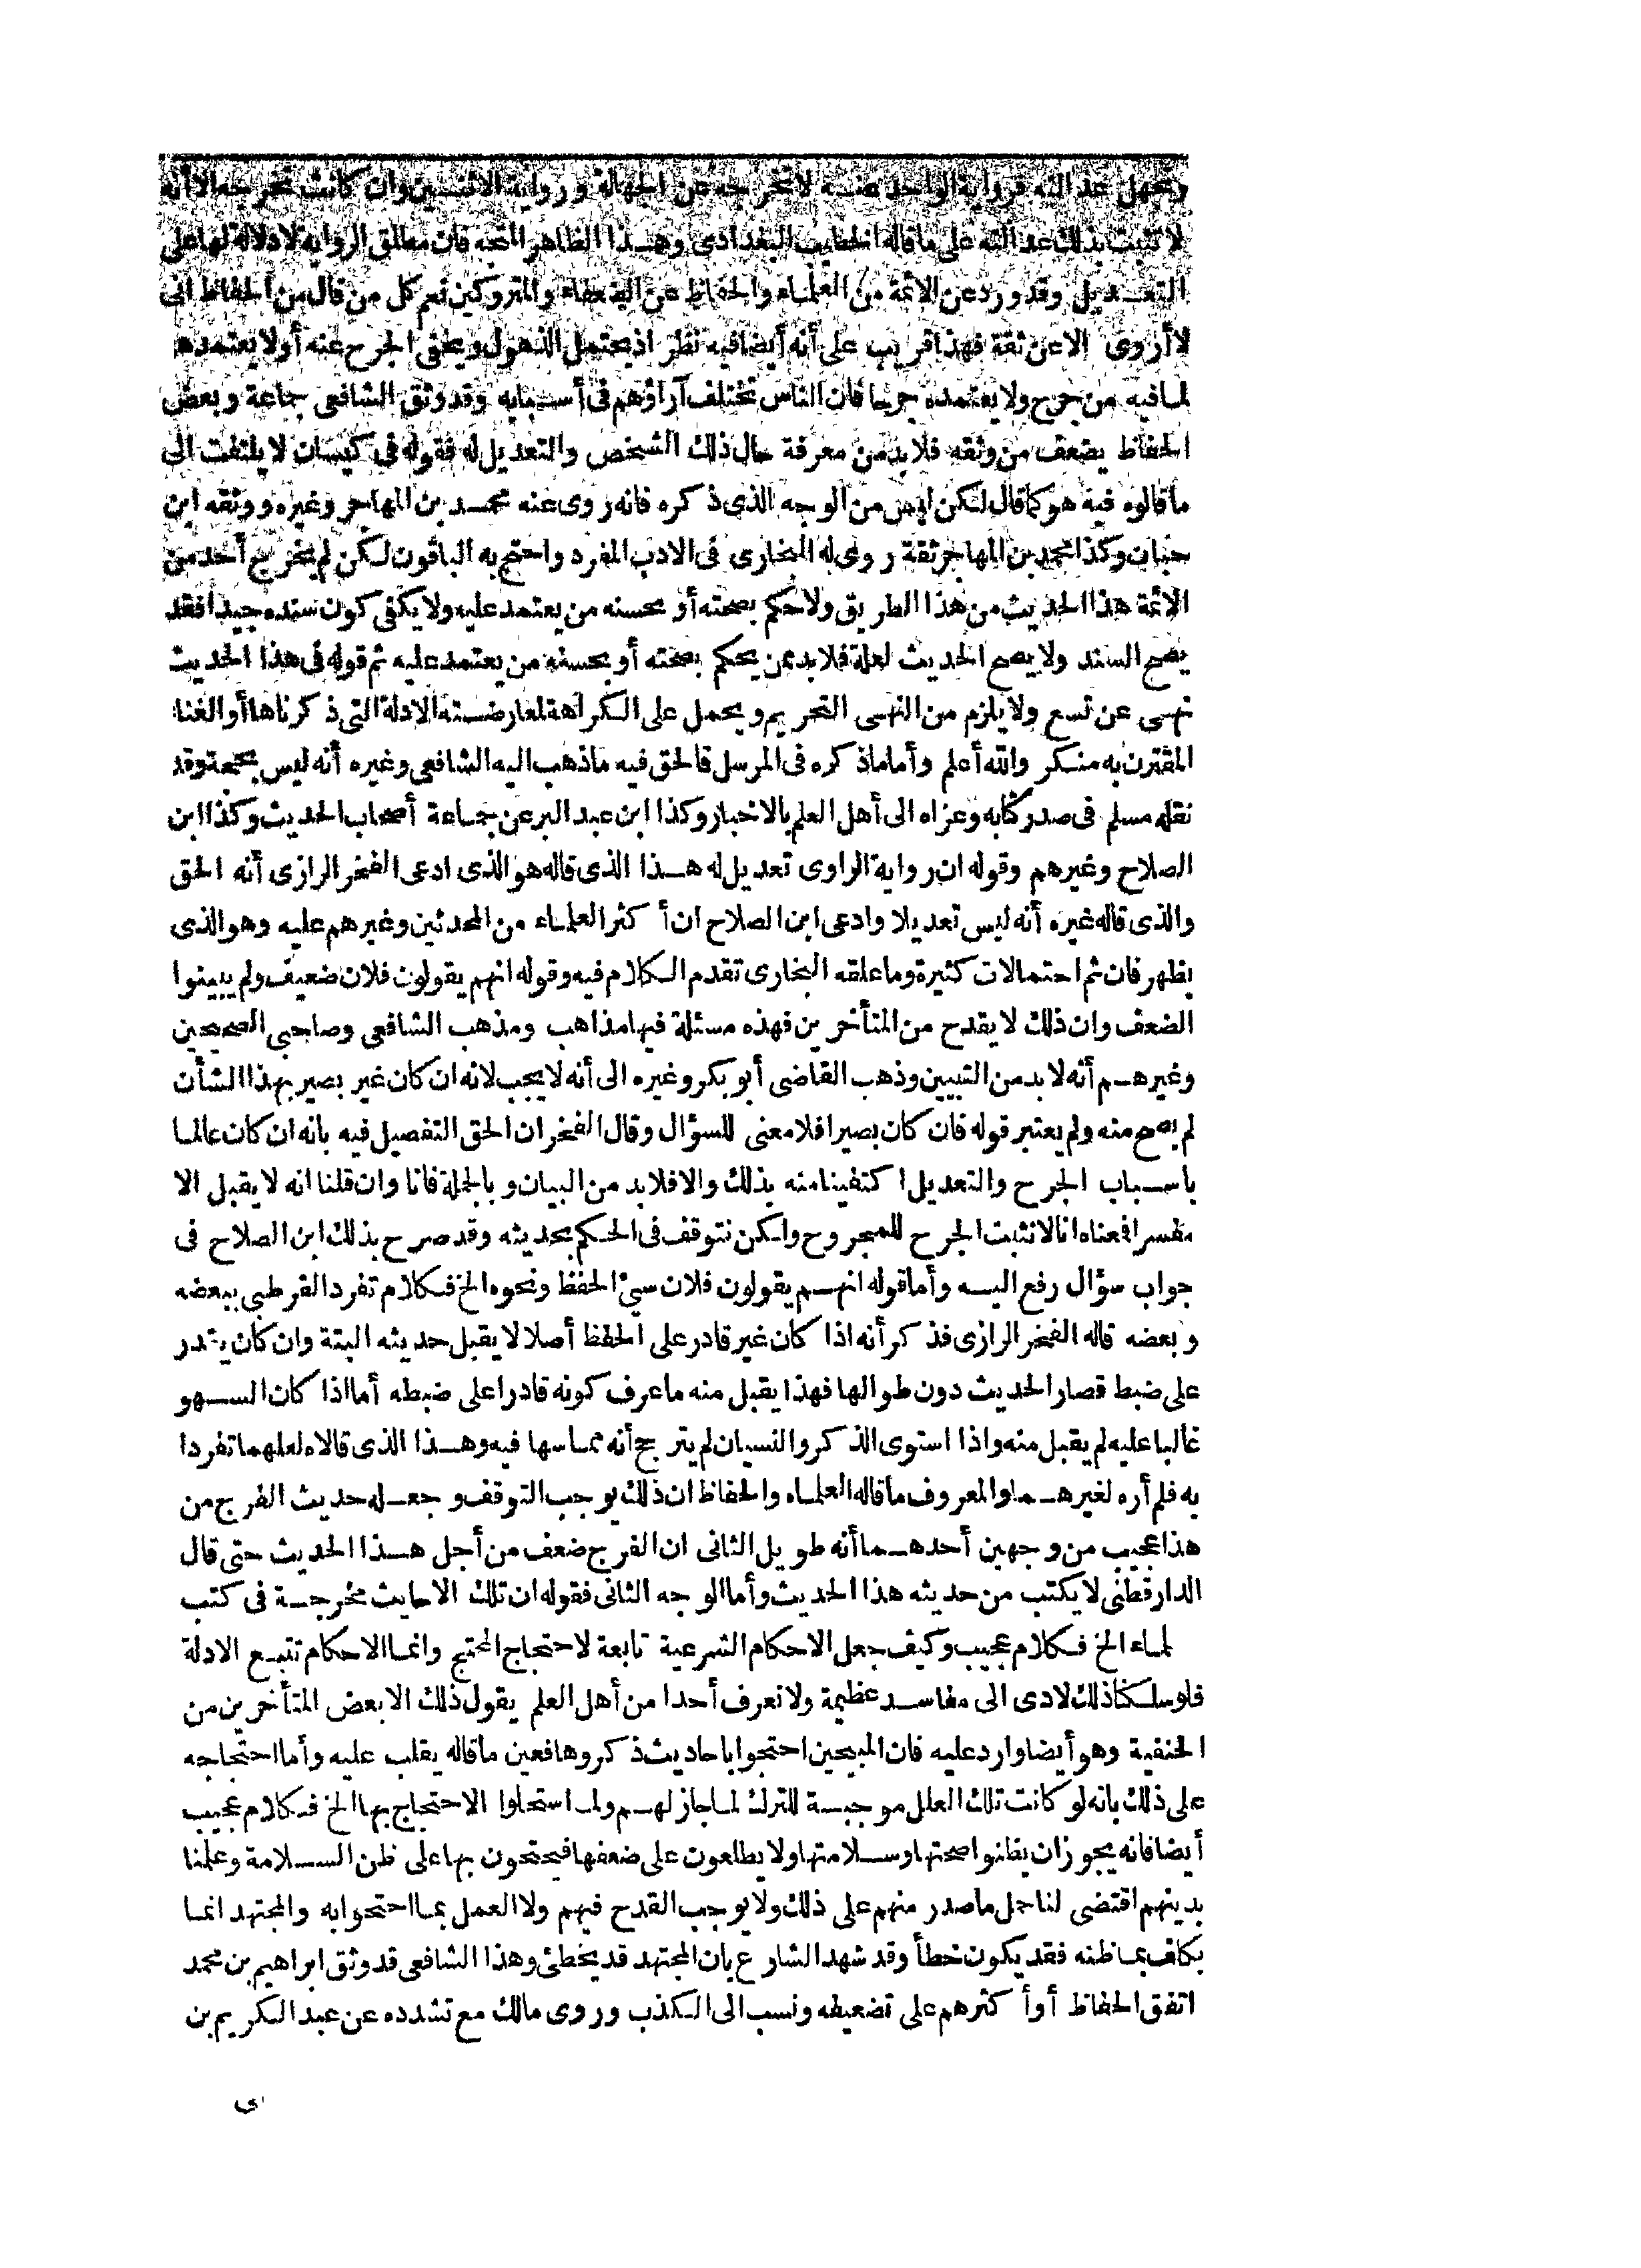 وتجهل عدالته فرواية الواحد عنه لا تخرجه عن الجهالة ورواية الاثنين وان كانت تخرجه الا أنه
لا تثبت بذلك عدالته على ما قاله الخطيب البغدادى وهذا الظاهر المتجه فان مطلق الرواية لا دلالة لها على
التعديل وقد ورد عن الائمة من العلماء والحفاظ عن الضعفاء والمتروكين نعم كل من قال من الحفاظ انى
لا أروى الا عن ثقة فهذا قريب على أنه أيضا فيه نظر اذ يحتمل الذهول ويخفى الجرح عنه أولا يعتمدها
لما فيه من جرح ولا يعتمده جرحا فان الناس تختلف آراؤهم فى أسبابه وقد وثق الشافعى جماعة وبعض
الحفاظ يضعف من وثقه فلا بد من معرفة حال ذلك الشخص والتعديل له فقوله فى كيسان لا يلتفت الى
ما قالوه فيه هو كما قال لكن ليس من الوجه الذى ذكره فانه روى عنه محمد بن المهاجر وغيره ووثقه ابن
حبان وكذا محمد بن المهاجر ثقة روى له البخارى فى الادب المفرد واحتج به الباقون لكن لم يخرج أحد من
الائمة هذا الحديث من هذا الطريق ولا حكم بصحته أو بحسنه من يعتمد عليه ولا يكفى كون سنده جيدا فقد
يصح السند ولا يصح الحديث لعلة فلا بد ممن يحكم بصحته أو بحسنه من يعتمد عليه ثم قوله فى هذا الحديث
نهى عن تسع ولا يلزم من النهى التحريم ويحمل على الكراهة لمعارضته الادلة التى ذكرناها أو الغناء
المقترن به منكر والله أعلم وأما ما ذكره فى المرسل فالحق فيه ما ذهب اليه الشافعى وغيره أنه ليس بحجة وقد
نقله مسلم فى صدر كتابه وعزاه الى أهل العلم بالاخبار وكذا ابن عبد البر عن جماعة أصحاب الحديث وكذا ابن
الصلاح وغيرهم وقوله ان رواية الراوى تعديل له هذا الذى قاله هو الذى ادعى الفخر الرازى أنه الحق
والذى قاله غيره أنه ليس تعديلا وادعى ابن الصلاح ان أكثر العلماء من المحدثين وغيرهم عليه وهو الذى
يظهر فان ثم احتمالات كثيرة وما علقه البخارى تقدم الكلام فيه وقوله انهم يقولون فلان ضعيف ولم يبينوا
الضعف وان ذلك لا يقدح من المتأخرين فهذه مسئلة فيها مذاهب ومذهب الشافعى وصاحبى الصحيحين
وغيرهم أنه لا بد من التبيين وذهب القاضى أبو بكر وغيره الى أنه لا يجب لانه ان كان غير بصير بهذا الشأن
لم يصح منه ولم يعتبر قوله فان كان بصيرا فلا معنى للسؤال وقال الفخر ان الحق التفصيل فيه بانه ان كان عالما
باسباب الجرح والتعديل اكتفينا منه بذلك والا فلا بد من البيان وبالجملة فانا وان قلنا انه لا يقبل الا
مفسرا فمعناه انا لا نثبت الجرح للمجروح ولكن نتوقف فى الحكم بحديثه وقد صرح بذلك ابن الصلاح فى
جواب سؤال رفع اليه وأما قوله انهم يقولون فلان سيئ الحفظ ونحوه الخ فكلام تفرد القرطبى ببعضه
وبعضه قاله الفخر الرازى فذكر أنه اذا كان غير قادر على الحفظ أصلا لا يقبل حديثه البتة وان كان يقدر
على ضبط قصار الحديث دون طوالها فهذا يقبل منه ما عرف كونه قادرا على ضبطه أما اذا كان السهو
غالبا عليه لم يقبل منه واذا استوى الذكر والنسيان لم يترجح أنه مما سها فيه وهذا الذى قالاه لعلهما تفردا
به فلم أره لغيرهما والمعروف ما قاله العلماء والحفاظ ان ذلك يوجب التوقف وجعله حديث الفرج من
هذا عجيب من وجهين أحدهما أنه طويل الثانى ان الفرج ضعف من أجل هذا الحديث حتى قال
الدارقطنى لا يكتب من حديثه هذا الحديث وأما الوجه الثانى فقوله ان تلك الاحايث مخرجة فى كتب
لماء الخ فكلام عجيب وكيف جعل الاحكام الشرعية تابعة لاحتجاج المحتج وانما الاحكام تتبع الادلة
فلو سلكنا ذلك لادى الى مفاسد عظيمة ولا نعرف أحدا من أهل العلم يقول ذلك الا بعض المتأخرين من
الحنفية وهو أيضا وارد عليه فان المبيحين احتجوا باحاديث ذكروها فعين ما قاله يقلب عليه وأما احتجاجه
على ذلك بانه لو كانت تلك العلل موجبة للترك لما جاز لهم ولما استحلوا الاحتجاج بها الخ فكلام عجيب
أيضا فانه يجوز ان يظنوا صحتها وسلامتها ولا يطلعون على ضعفها فيحتجون بها على ظن السلامة وعلمنا
بدينهم اقتضى لنا حمل ما صدر منهم على ذلك ولا يوجب القدح فيهم ولا العمل بما احتجوا به والمجتهد انما
يكلف بما ظنه فقد يكون خطأ وقد شهد الشارع بان المجتهد قد يخطئ وهذا الشافعى قد وثق ابراهيم بن محمد
اتفق الحفاظ أو أكثرهم على تضعيفه ونسب الى الكذب وروى مالك مع تشدده عن عبد الكريم بن